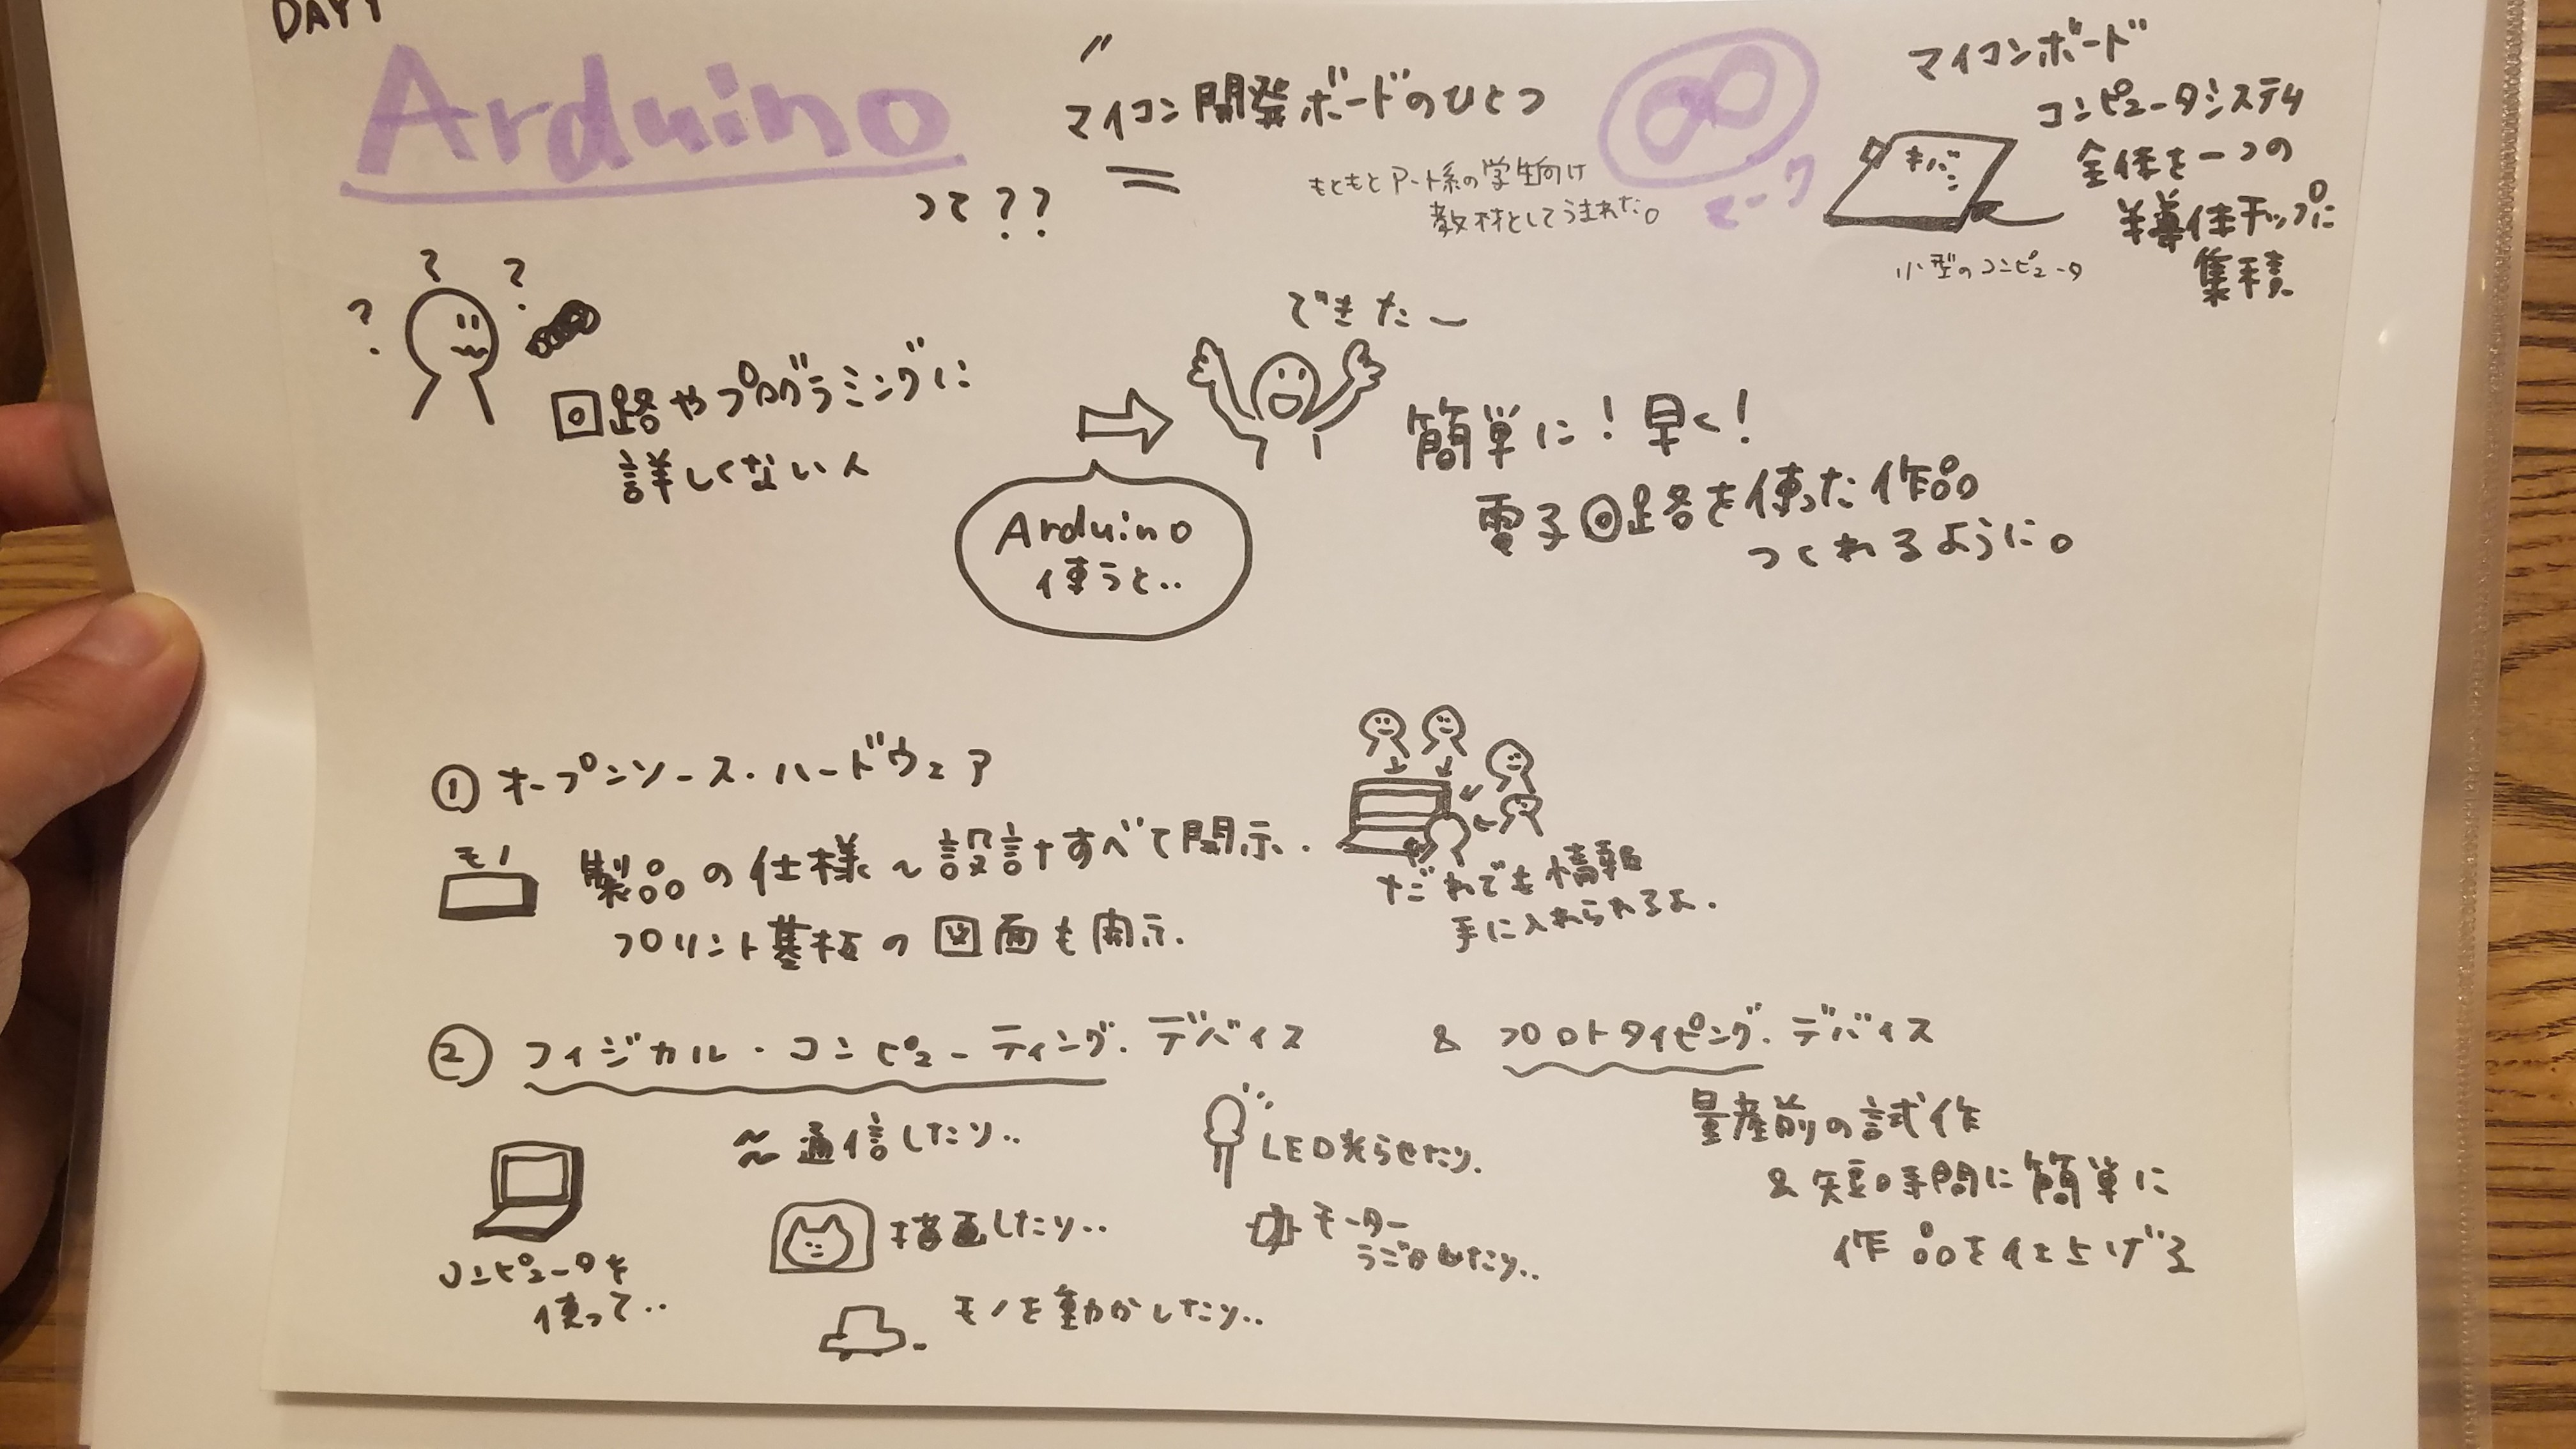 DAY1
Arduino
って??
マイコン開発ボードのひとつ
もともとアート系の学生向け
教材としてうまれた。
マーク
マイコンボード
コンピュータシステム
全体を一つの
半導体チップに
集積
キバン
小型のコンピュータ
? ? ?
回路やプログラミングに
詳しくない人
Arduino
使うと..
できたー
簡単に!早く!
電子回路を使った作品
つくれるように。
① オープンソース・ハードウェア
モノ
製品の仕様〜設計すべて開示.
プリント基板の図面も開示.
だれでも情報
手に入れられるよ.
② フィジカル・コンピューティング.デバイス & プロトタイピング.デバイス
コンピュータを
使って..
通信したり..
描画したり..
モノを動かしたり..
LED光らせたり.
モーター
うごかしたり..
量産前の試作
&短時間に簡単に
作品を仕上げる